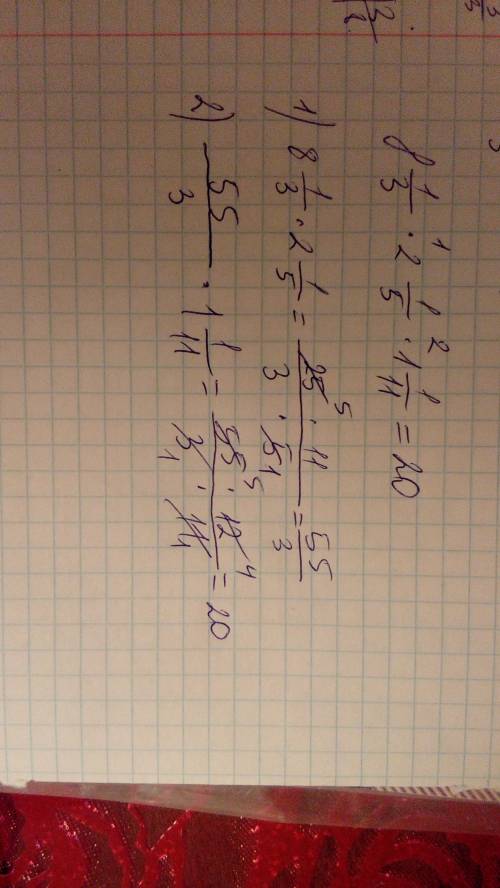 8 1/3 ·¹ 2 1/5 ·² 1 1/11 = 20
1) 8 1/3 · 2 1/5 = 25 5 · 11 / 3 · 5 1 = 55/3
2) 55/3 · 1 1/11 = 55 5 · 12 4 / 3 1 · 11 1 = 20